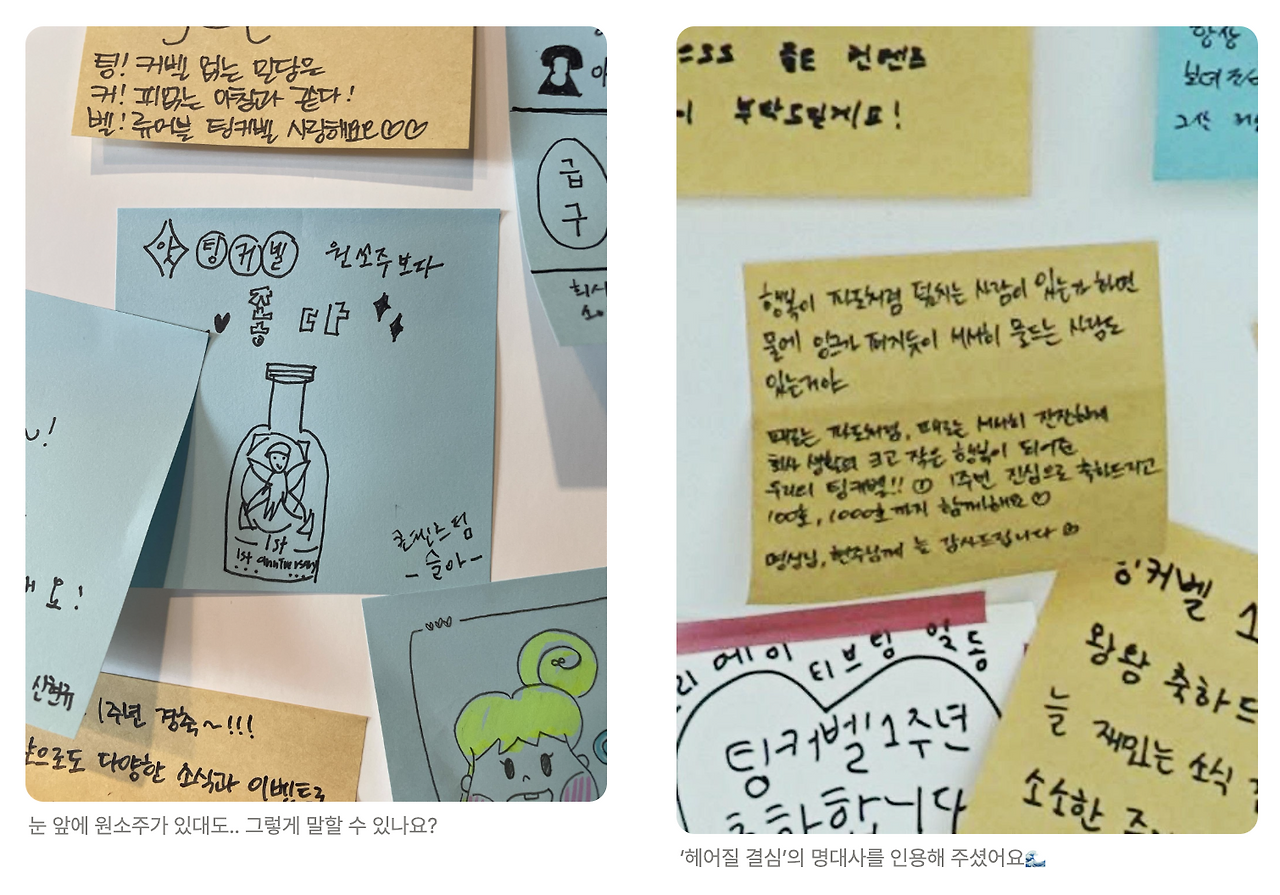 팅! 커벨 없는 민당은
커! 피없는 아침과 같다!
벨! 류어블 팅커벨 사랑해요♡♡
급
구
회사
앗 팅커벨 원쏘주보다
쪼아
1st
1st anniversary
콜젠스럼
-슬아-
요!
신현규
1주년 경축~!!!
앞으로도 다양한 소식과 이벤트로
눈 앞에 원소주가 있대도.. 그렇게 말할 수 있나요?
컨텐츠
부탁드릴게요!
항상
행복이 파도처럼 덮치는 사람이 있는가 하면
물에 잉크가 퍼지듯이 서서히 물드는 사람도
있는거야
때로는 파도처럼, 때로는 서서히 잔잔하게
회사 생활의 크고 작은 행복이 되어준
우리의 팅커벨!! 1주년 진심으로 축하드리고
100호, 1000호까지 함께해요♡
명선님, 현주님께 늘 감사드립니다
리에이티브팀 일동
팅커벨 1주년
축하합니다
팅커벨 1
왕왕 축하드
늘 재밌는 소식
소소한
‘헤어질 결심’의 명대사를 인용해 주셨어요🌊